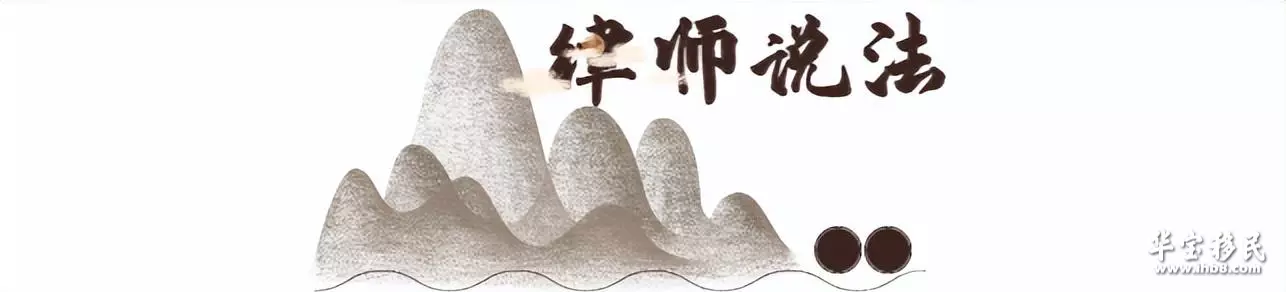 律师说法
华宝移民
www.ihb8.com